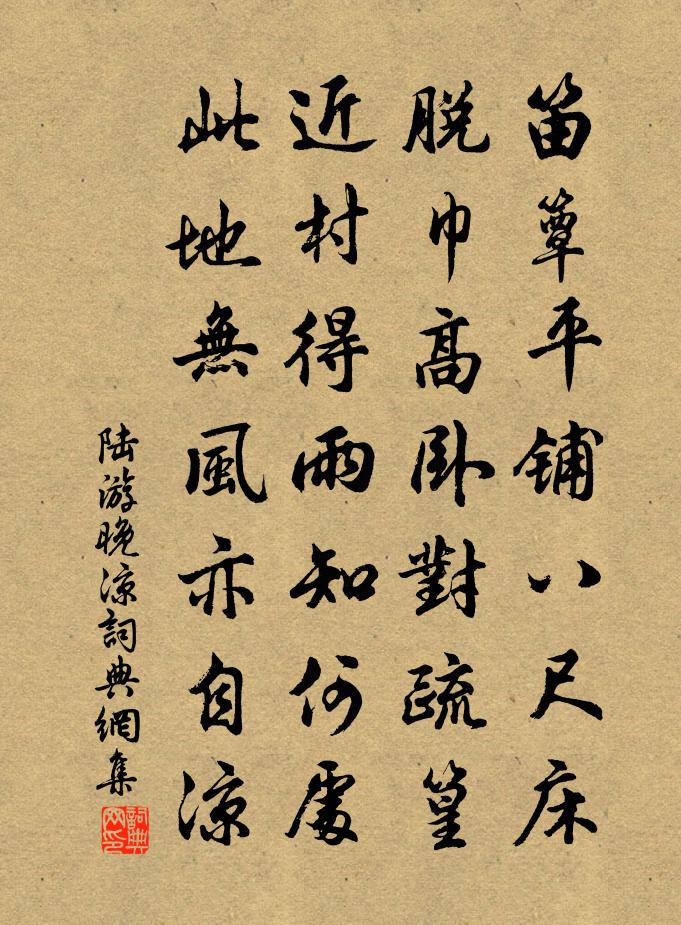 笛簟平铺八尺床
脫巾高卧對疏篁
近村得雨知何處
此地無風亦自凉
陆游晚凉詞典網集
詞典網印